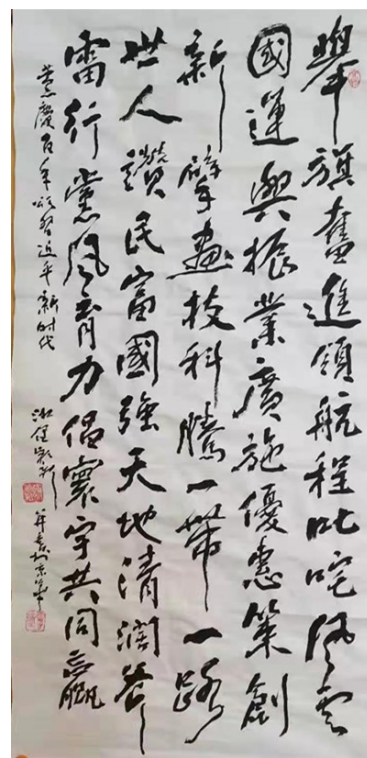 舉旗奮進領航程叱咤風雲
國運興振業廣施優惠策創
新擘畫技科騰一帶一路
世人讚民富國強天地清潤春
雷行黨風育力倡寰宇共同贏
慶百年頌習近平新时代
并書於京華